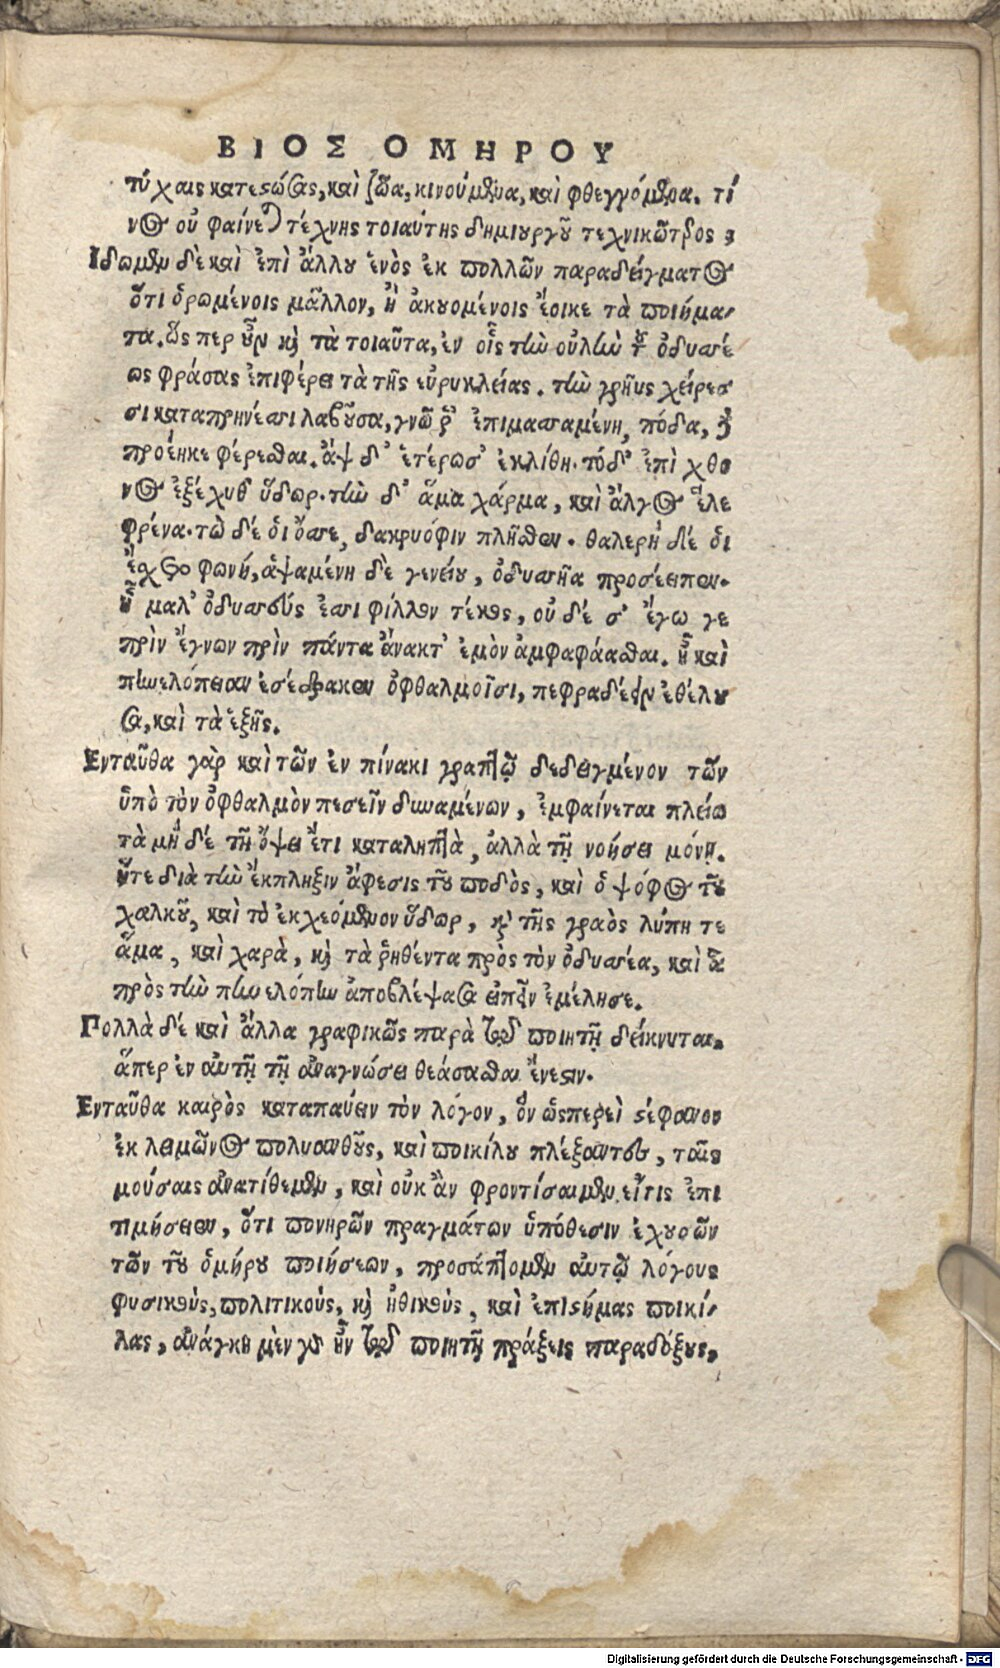 ΒΙΟΣ ΟΜΗΡΟΥ
τύχαις κατεστώσας, καὶ ζῶα, κινούμενα, καὶ φθεγγόμενα. τί
νος οὐ φαίνεται τέχνης τοιαύτης δημιουργοῦ τεχνικώτερος;
Ἴδωμεν δὲ καὶ ἐπὶ ἄλλου ἑνὸς ἐκ πολλῶν παραδείγματος
ὅτι ὁρωμένοις μᾶλλον, ἢ ἀκουομένοις ἔοικε τὰ ποιήμα-
τα. ὥς περ οὖν καὶ τὰ τοιαῦτα, ἐν οἷς τὴν οὐλὴν τοῦ ὀδυσσέ
ως φράσας ἐπιφέρει τὰ τῆς εὐρυκλείας. τὴν γρηῢς χείρεσ
σι καταπρηνέσσι λαβοῦσα, γνῶ ῥ' ἐπιμασσαμένη, πόδα, δὲ
προέηκε φέρεσθαι. ἂψ δ' ἑτέρωσ' ἐκλίθη. τόδ' ἐπὶ χθο
νὸς ἐξέχυθ' ὕδωρ. τὴν δ' ἅμα χάρμα, καὶ ἄλγος ἕλε
φρένα. τὼ δέ οἱ ὄσσε, δακρυόφιν πλῆσθεν. θαλερὴ δέ οἱ
ἔσχετο φωνή, ἁψαμένη δὲ γενείου, ὀδυσσῆα προσέειπεν.
ἦ μαλ' ὀδυσσεύς ἐσσι φίλλον τέκος, οὐ δέ σ' ἔγω γε
πρὶν ἔγνων πρὶν πάντα ἄνακτ' ἐμὸν ἀμφαφάασθαι. ἦ καὶ
πηνελόπειαν ἐσέδρακεν ὀφθαλμοῖσι, πεφραδέειν ἐθέλου
σα, καὶ τὰ ἑξῆς.
Ἐνταῦθα γὰρ καὶ τῶν ἐν πίνακι γραπτῷ δεδειγμένον τῶν
ὑπὸ τὸν ὀφθαλμὸν πεσεῖν δυναμένων, ἐμφαίνεται πλείω
τὰ μὴ δέ τῇ ὄψει ἔτι καταληπτὰ, ἀλλὰ τῇ νοήσει μόνῃ.
ἥτε διὰ τὴν ἔκπληξιν ἄφεσις τοῦ ποδὸς, καὶ ὁ ψόφος τοῦ
χαλκοῦ, καὶ τὸ ἐκχεόμενον ὕδωρ, καὶ τῆς γραὸς λύπη τε
ἅμα, καὶ χαρὰ, καὶ τὰ ῥηθέντα πρὸς τὸν ὀδυσσέα, καὶ ἃ
πρὸς τὴν πηνελόπην ἀποβλέψασα εἰπεῖν ἐμέλησε.
Πολλὰ δέ καὶ ἄλλα γραφικῶς παρὰ τῷ ποιητῇ δείκνυται.
ἅπερ ἐν αὐτῇ τῇ ἀναγνώσει θεάσασθαι ἔνεστιν.
Ἐνταῦθα καιρὸς καταπαύειν τὸν λόγον, ὃν ὥσπερεὶ στέφανον
ἐκ λειμῶνος πολυανθοῦς, καὶ ποικίλου πλέξαντες, ταῖς
μούσαις ἀνατίθεμεν, καὶ οὐκ ἂν φροντίσαιμεν, εἴτις ἐπι
τιμήσειεν, ὅτι πονηρῶν πραγμάτων ὑπόθεσιν ἐχουσῶν
τῶν τοῦ ὁμήρου ποιήσεων, προσάπτομεν αὐτῷ λόγους
φυσικοὺς, πολιτικούς, καὶ ἠθικοὺς, καὶ ἐπιστήμας ποικί-
λας, ἀνάγκη μὲν γὰρ ἦν τῷ ποιητῇ πράξεις παραδόξους,
Digitalisierung gefördert durch die Deutsche Forschungsgemeinschaft - DFG